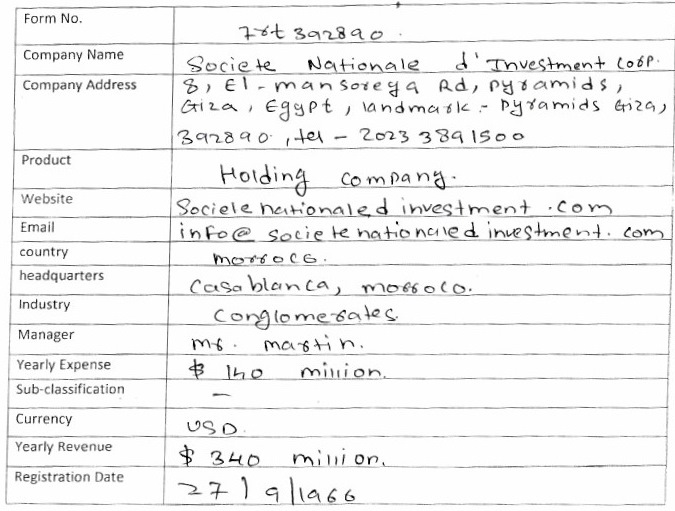 Form No. 7rt 392890.
Company Name Societe Nationale d'Investment Corp.
Company Address 8, El-mansoreya Rd, pyramids,
Giza, Egypt, landmark:- Pyramids Giza,
392890, tel - 2023 3891500
Product Holding company.
Website Societenationaled investment.com
Email info@societenationaledinvestment.com
country morroco.
headquarters Casablanca, morroco.
Industry Conglomerates.
Manager mr. martin.
Yearly Expense $ 140 million.
Sub-classification –
Currency USD.
Yearly Revenue $ 340 million.
Registration Date 27/9/1966